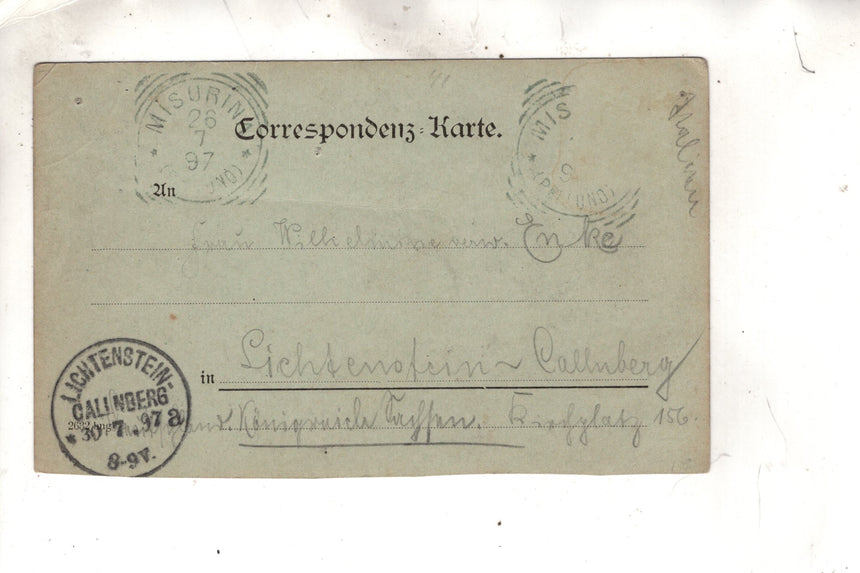 MISURINA
26
7
97
Correspondenz-Karte.
MIS
9
Italien
An
Frau Wilhelmine verw. Enke
in Lichtenstein-Callnberg
Königreich Sachsen. Kirchplatz 156.
LICHTENSTEIN-
CALLNBERG
30 7. 97 a
8-9V.